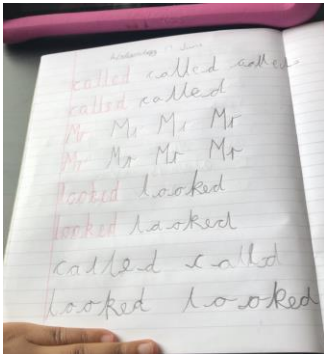 called called called
called called
Mr Mr Mr Mr
Mr Mr Mr Mr
looked looked
looked looked
called called
looked looked